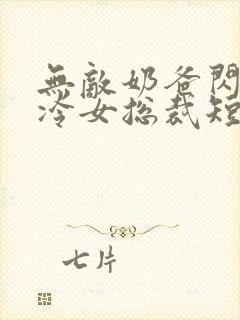 無敵奶爸閃
冷女總裁短
七片